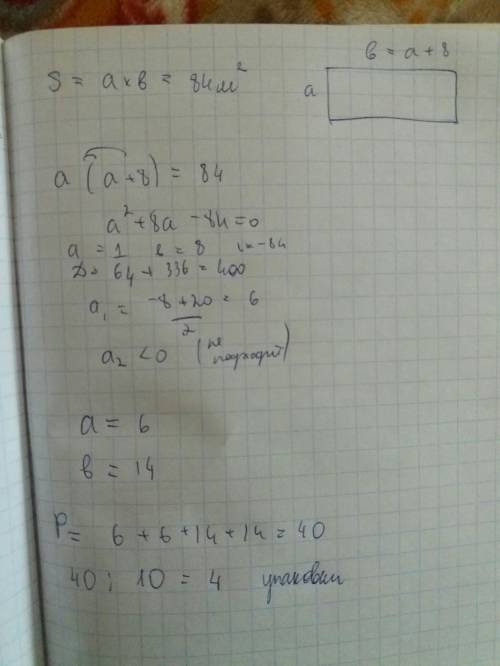 в = a + 8
S = a × в = 84 м²
a
a (a + 8) = 84
a² + 8a - 84 = 0
a = 1 в = 8 c = -84
D = 64 + 336 = 400
a₁ = (-8 + 20)/2 = 6
a₂ < 0 (не подходит)
a = 6
в = 14
P = 6 + 6 + 14 + 14 = 40
40 : 10 = 4 упаковки